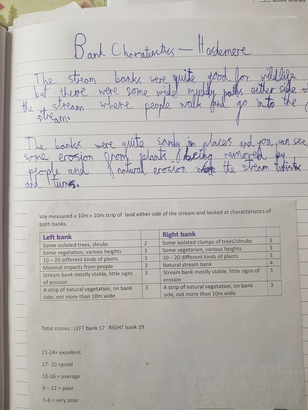 Bank Charateristics - Haslemere
The stream banks were quite good for wildlife
but there were some wide muddy paths either side of
the stream where people walk and go into the
stream.
The banks were quite sandy in places and you can see
some erosion from plants being removed by
people and natural erosion where the stream twists
and turns.
We measured a 10m x 10m strip of land either side of the stream and looked at characteristics of
both banks.
Left bank Right bank
Some isolated trees, shrubs 2 Some isolated clumps of trees/shrubs 3
Some vegetation, various heights 3 Some vegetarian, various heights 3
10 – 20 different kinds of plants 3 10 – 20 different kinds of plants 3
Minimal impacts from people 3 Natural stream bank 4
Stream bank mostly stable, little signs 3 Stream bank mostly stable, little signs of 3
of erosion erosion
A strip of natural vegetation, on bank 3 A strip of natural vegetation, on bank 3
side, not more than 10m wide side, not more than 10m wide
Total scores : LEFT bank 17 RIGHT bank 19
21-24= excellent
17- 20 =good
13-16 = average
9 – 12 = poor
5-8 = very poor